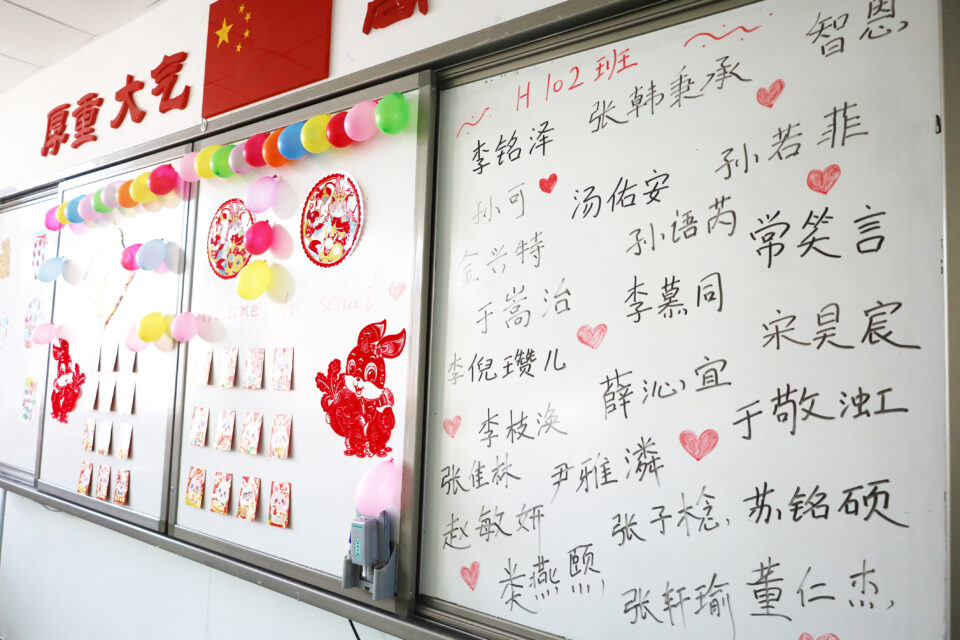 厚重 大气
Welcome to school
H102班
智恩
张韩秉承
李铭泽
孙若菲
汤佑安
孙可
孙语芮
常笑言
金兴特
李慕同
于嵩治
宋昊宸
李倪瓒儿
薛沁宜
于敬浤
李枝涣
张佳林
尹雅潾
苏铭硕
张子棯
赵敏妍
娄燕颐
张轩瑜
董仁杰